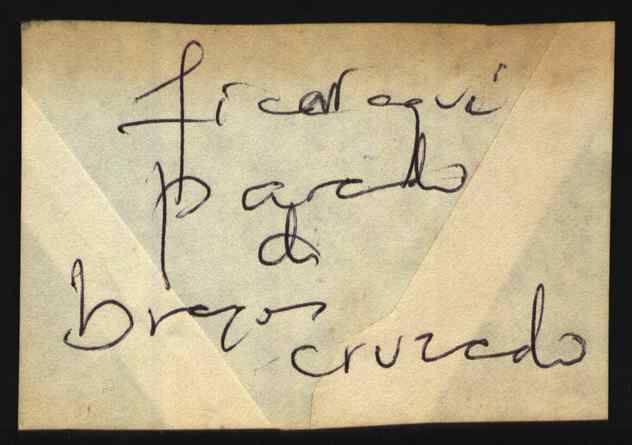 ficar aqui
parado
di
braços
cruzado